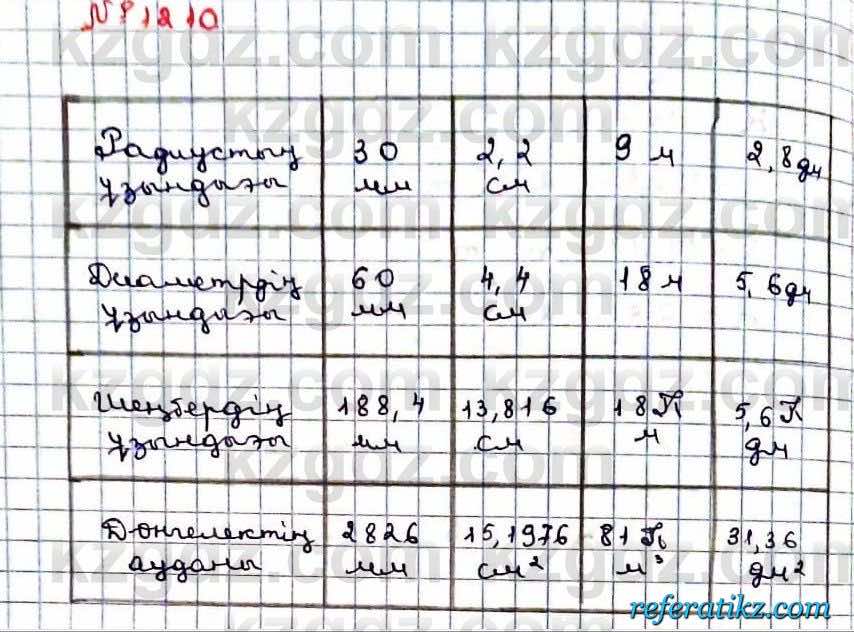 № 1210
kzgdz.com
Радиустың ұзындығы 30 мм 2,2 см 9 м 2,8 дм
Диаметрдің ұзындығы 60 мм 4,4 см 18 м 5,6 дм
Шеңбердің ұзындығы 188,4 мм 13,816 см 18П м 5,6П дм
Дөңгелектің ауданы 2826 мм 15,1976 см² 81П м³ 31,36 дм²
referatikz.com